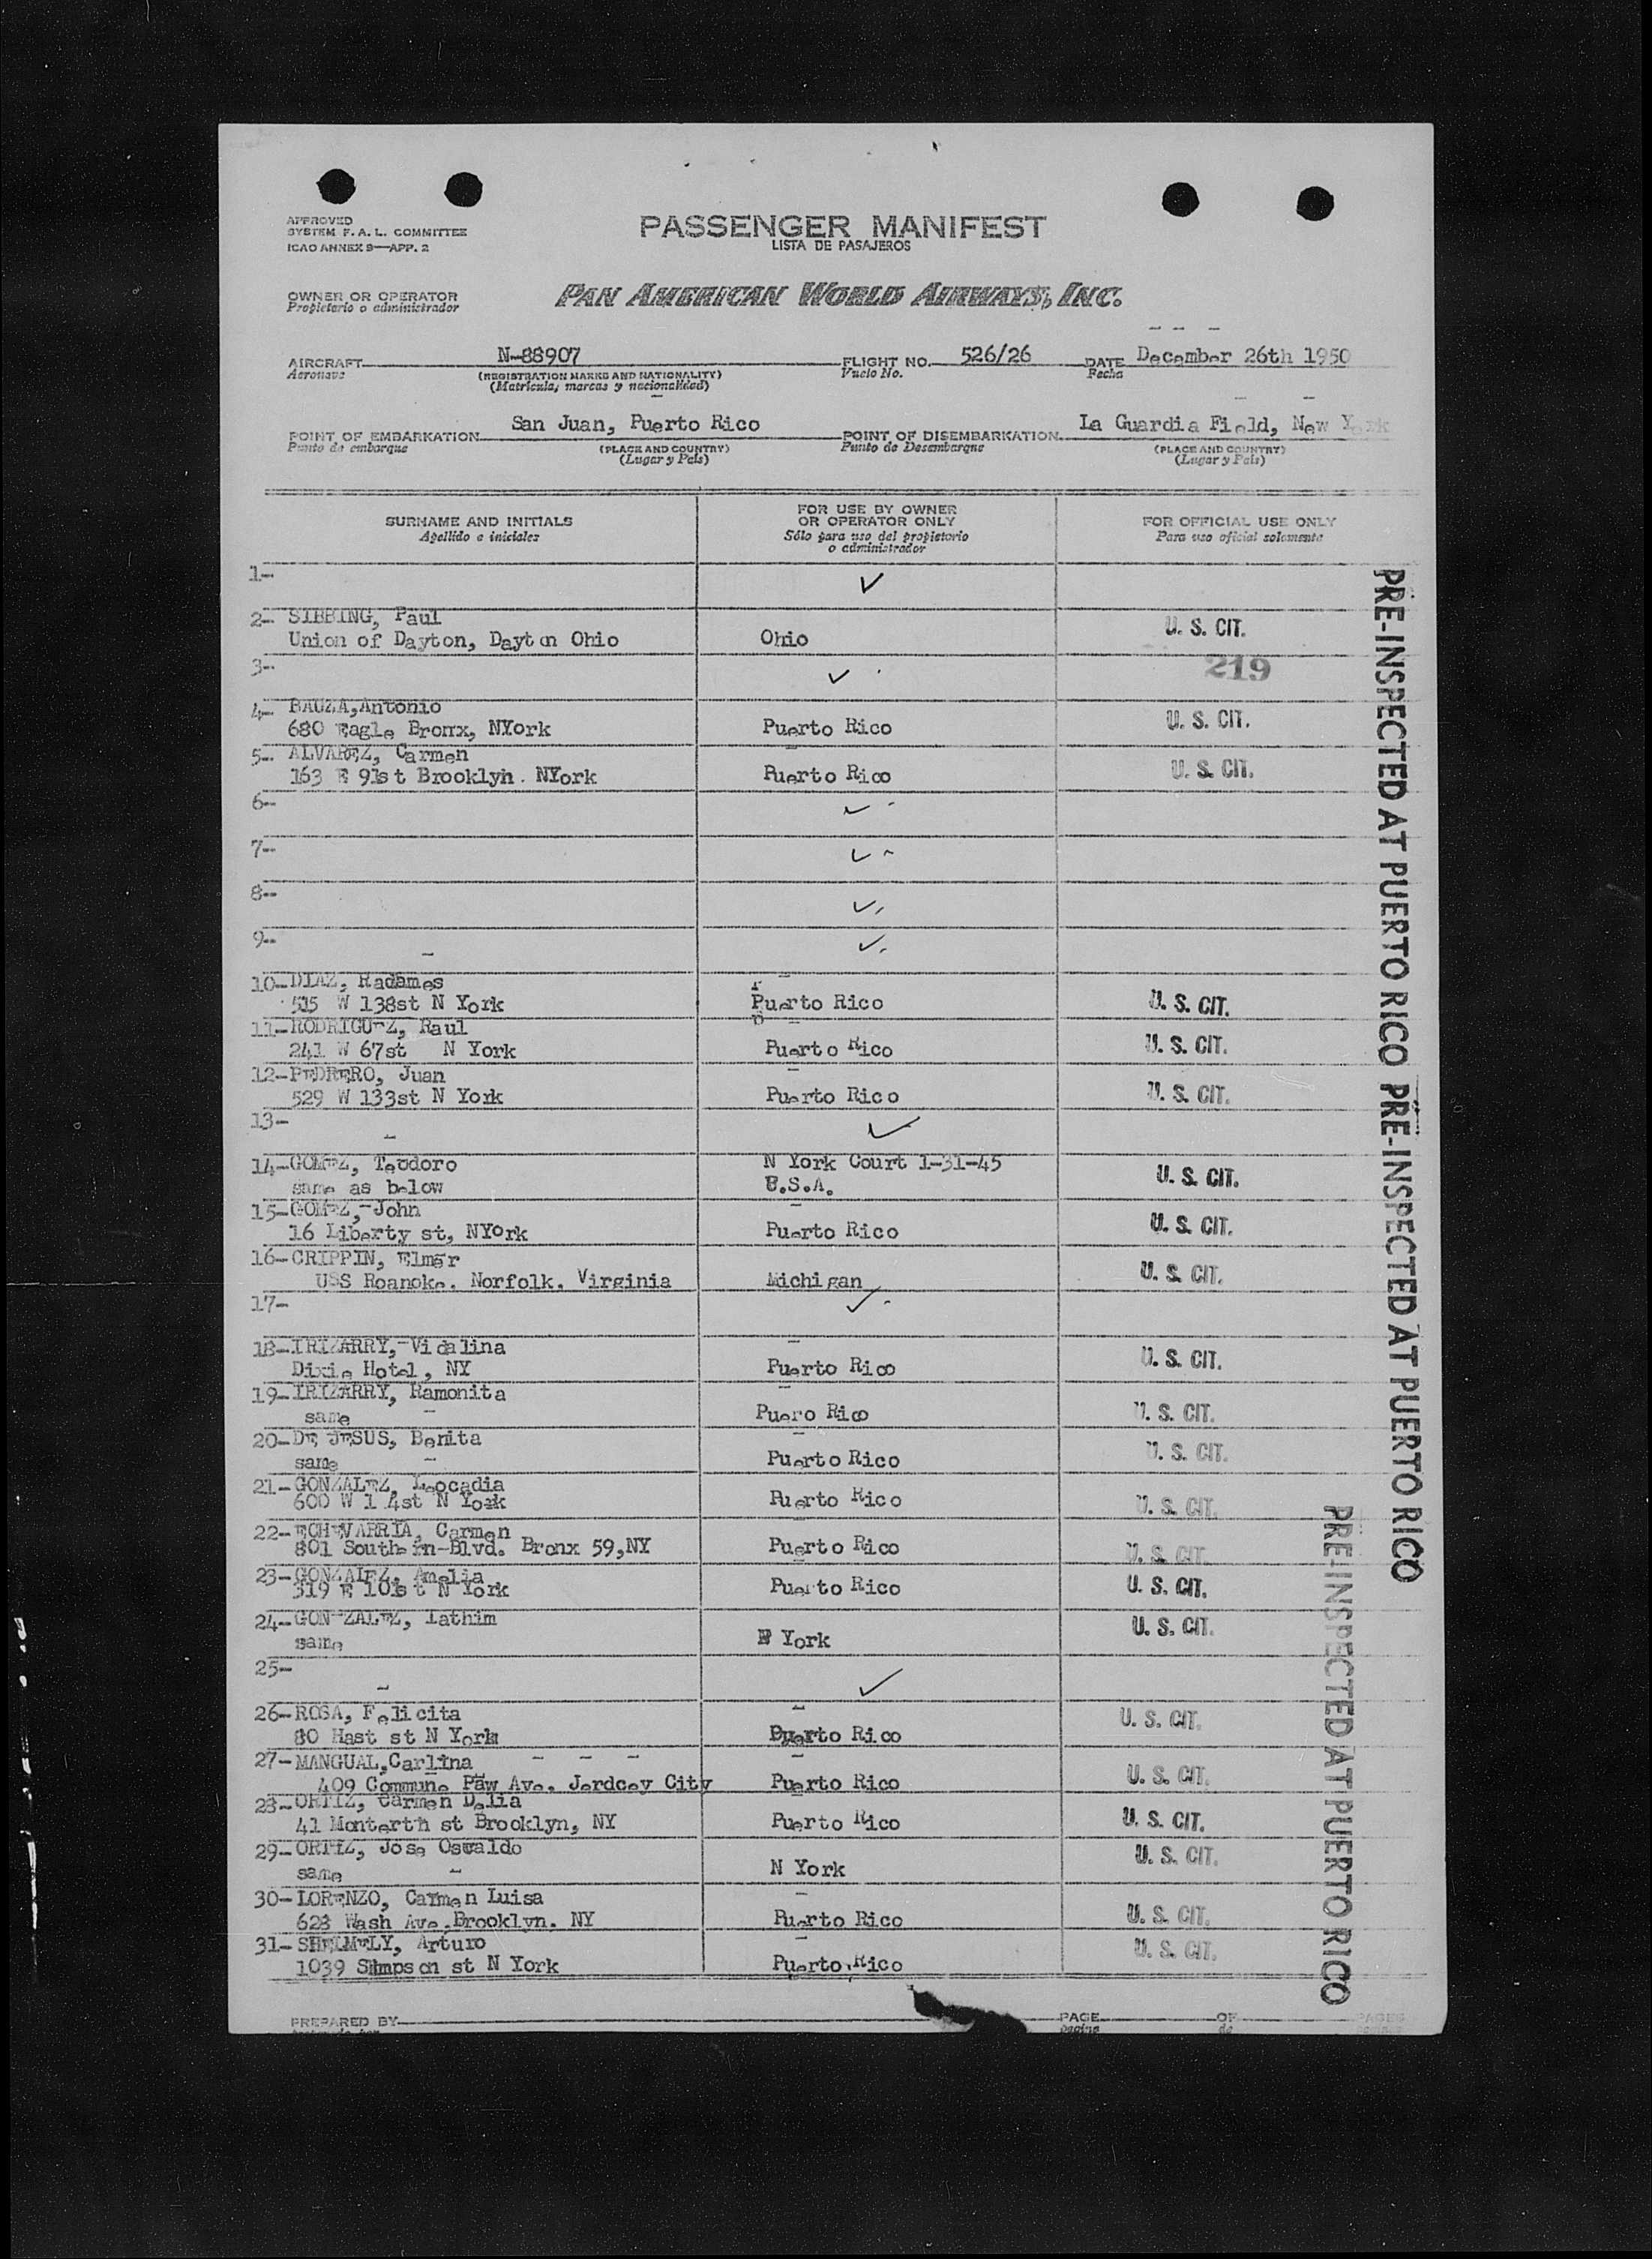 APPROVED
SYSTEM F. A. L. COMMITTEE
ICAO ANNEX 9—APP. 2
PASSENGER MANIFEST
LISTA DE PASAJEROS
OWNER OR OPERATOR
Propietario o administrador
PAN AMERICAN WORLD AIRWAYS, INC.
AIRCRAFT N-88907 FLIGHT NO. 526/26 DATE December 26th 1950
Aeronave (REGISTRATION MARKS AND NATIONALITY) Vuelo No. Fecha
(Matrícula, marcas y nacionalidad)
POINT OF EMBARKATION San Juan, Puerto Rico POINT OF DISEMBARKATION La Guardia Field, New York
Punto de embarque (PLACE AND COUNTRY) Punto de Desembarque (PLACE AND COUNTRY)
(Lugar y País) (Lugar y País)
SURNAME AND INITIALS FOR USE BY OWNER OR OPERATOR ONLY FOR OFFICIAL USE ONLY
Apellido e iniciales Sólo para uso del propietario o administrador Para uso oficial solamente
1- ✓
2- SIBBING, Paul
Union of Dayton, Dayton Ohio Ohio U. S. CIT.
3- ✓ 219
4- BAUZA,Antonio
680 Eagle Bronx, NYork Puerto Rico U. S. CIT.
5- ALVAREZ, Carmen
163 E 91st Brooklyn. NYork Puerto Rico U. S. CIT.
6- ✓
7- ✓
8- ✓
9- ✓
10- DIAZ, Radames
515 W 138st N York Puerto Rico U. S. CIT.
11- RODRIGUEZ, Raul
241 W 67st N York Puerto Rico U. S. CIT.
12- PEDRERO, Juan
529 W 133st N York Puerto Rico U. S. CIT.
13- ✓
14- GOMEZ, Teodoro N York Court 1-31-45
same as below U.S.A. U. S. CIT.
15- GOMEZ, John
16 Liberty st, NYork Puerto Rico U. S. CIT.
16- CRIPPIN, Elmer
USS Roanoke. Norfolk. Virginia Michigan U. S. CIT.
17- ✓
18- IRIZARRY, Vidalina
Dixie Hotel, NY Puerto Rico U. S. CIT.
19- IRIZARRY, Ramonita
same Puero Rico U. S. CIT.
20- DE JESUS, Benita
same Puerto Rico U. S. CIT.
21- GONZALEZ, Leocadia
600 W 1 4st N York Puerto Rico U. S. CIT.
22- ECHEVARRIA, Carmen
801 Southern-Blvd. Bronx 59,NY Puerto Rico U. S. CIT.
23- GONZALEZ, Amelia
319 E 101st N York Puerto Rico U. S. CIT.
24- GONZALEZ, Iathim
same N York U. S. CIT.
25- ✓
26- ROSA, Felicita
80 Hast st N York Puerto Rico U. S. CIT.
27- MANGUAL,Carlina
409 Commune Paw Ave. Jerdcey City Puerto Rico U. S. CIT.
28- ORTIZ, Carmen Delia
41 Monterth st Brooklyn, NY Puerto Rico U. S. CIT.
29- ORTIZ, Jose Oswaldo
same N York U. S. CIT.
30- LORENZO, Carmen Luisa
623 Wash Ave.Brooklyn. NY Puerto Rico U. S. CIT.
31- SHELMELY, Arturo
1039 Simpson st N York Puerto Rico U. S. CIT.
PREPARED BY PAGE OF PAGES
PRE-INSPECTED AT PUERTO RICO
PRE-INSPECTED AT PUERTO RICO
PRE-INSPECTED AT PUERTO RICO